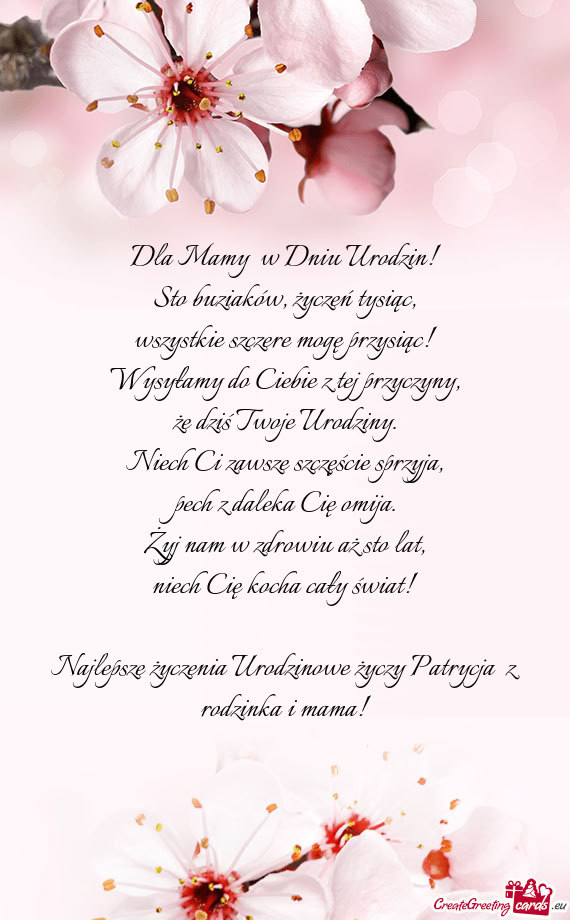 Dla Mamy w Dniu Urodzin!
Sto buziaków, życzeń tysiąc,
wszystkie szczere mogę przysiąc!
Wysyłamy do Ciebie z tej przyczyny,
że dziś Twoje Urodziny.
Niech Ci zawsze szczęście sprzyja,
pech z daleka Cię omija.
Żyj nam w zdrowiu aż sto lat,
niech Cię kocha cały świat!
Najlepsze życzenia Urodzinowe życzy Patrycja z
rodzinka i mama!
CreateGreeting cards .eu